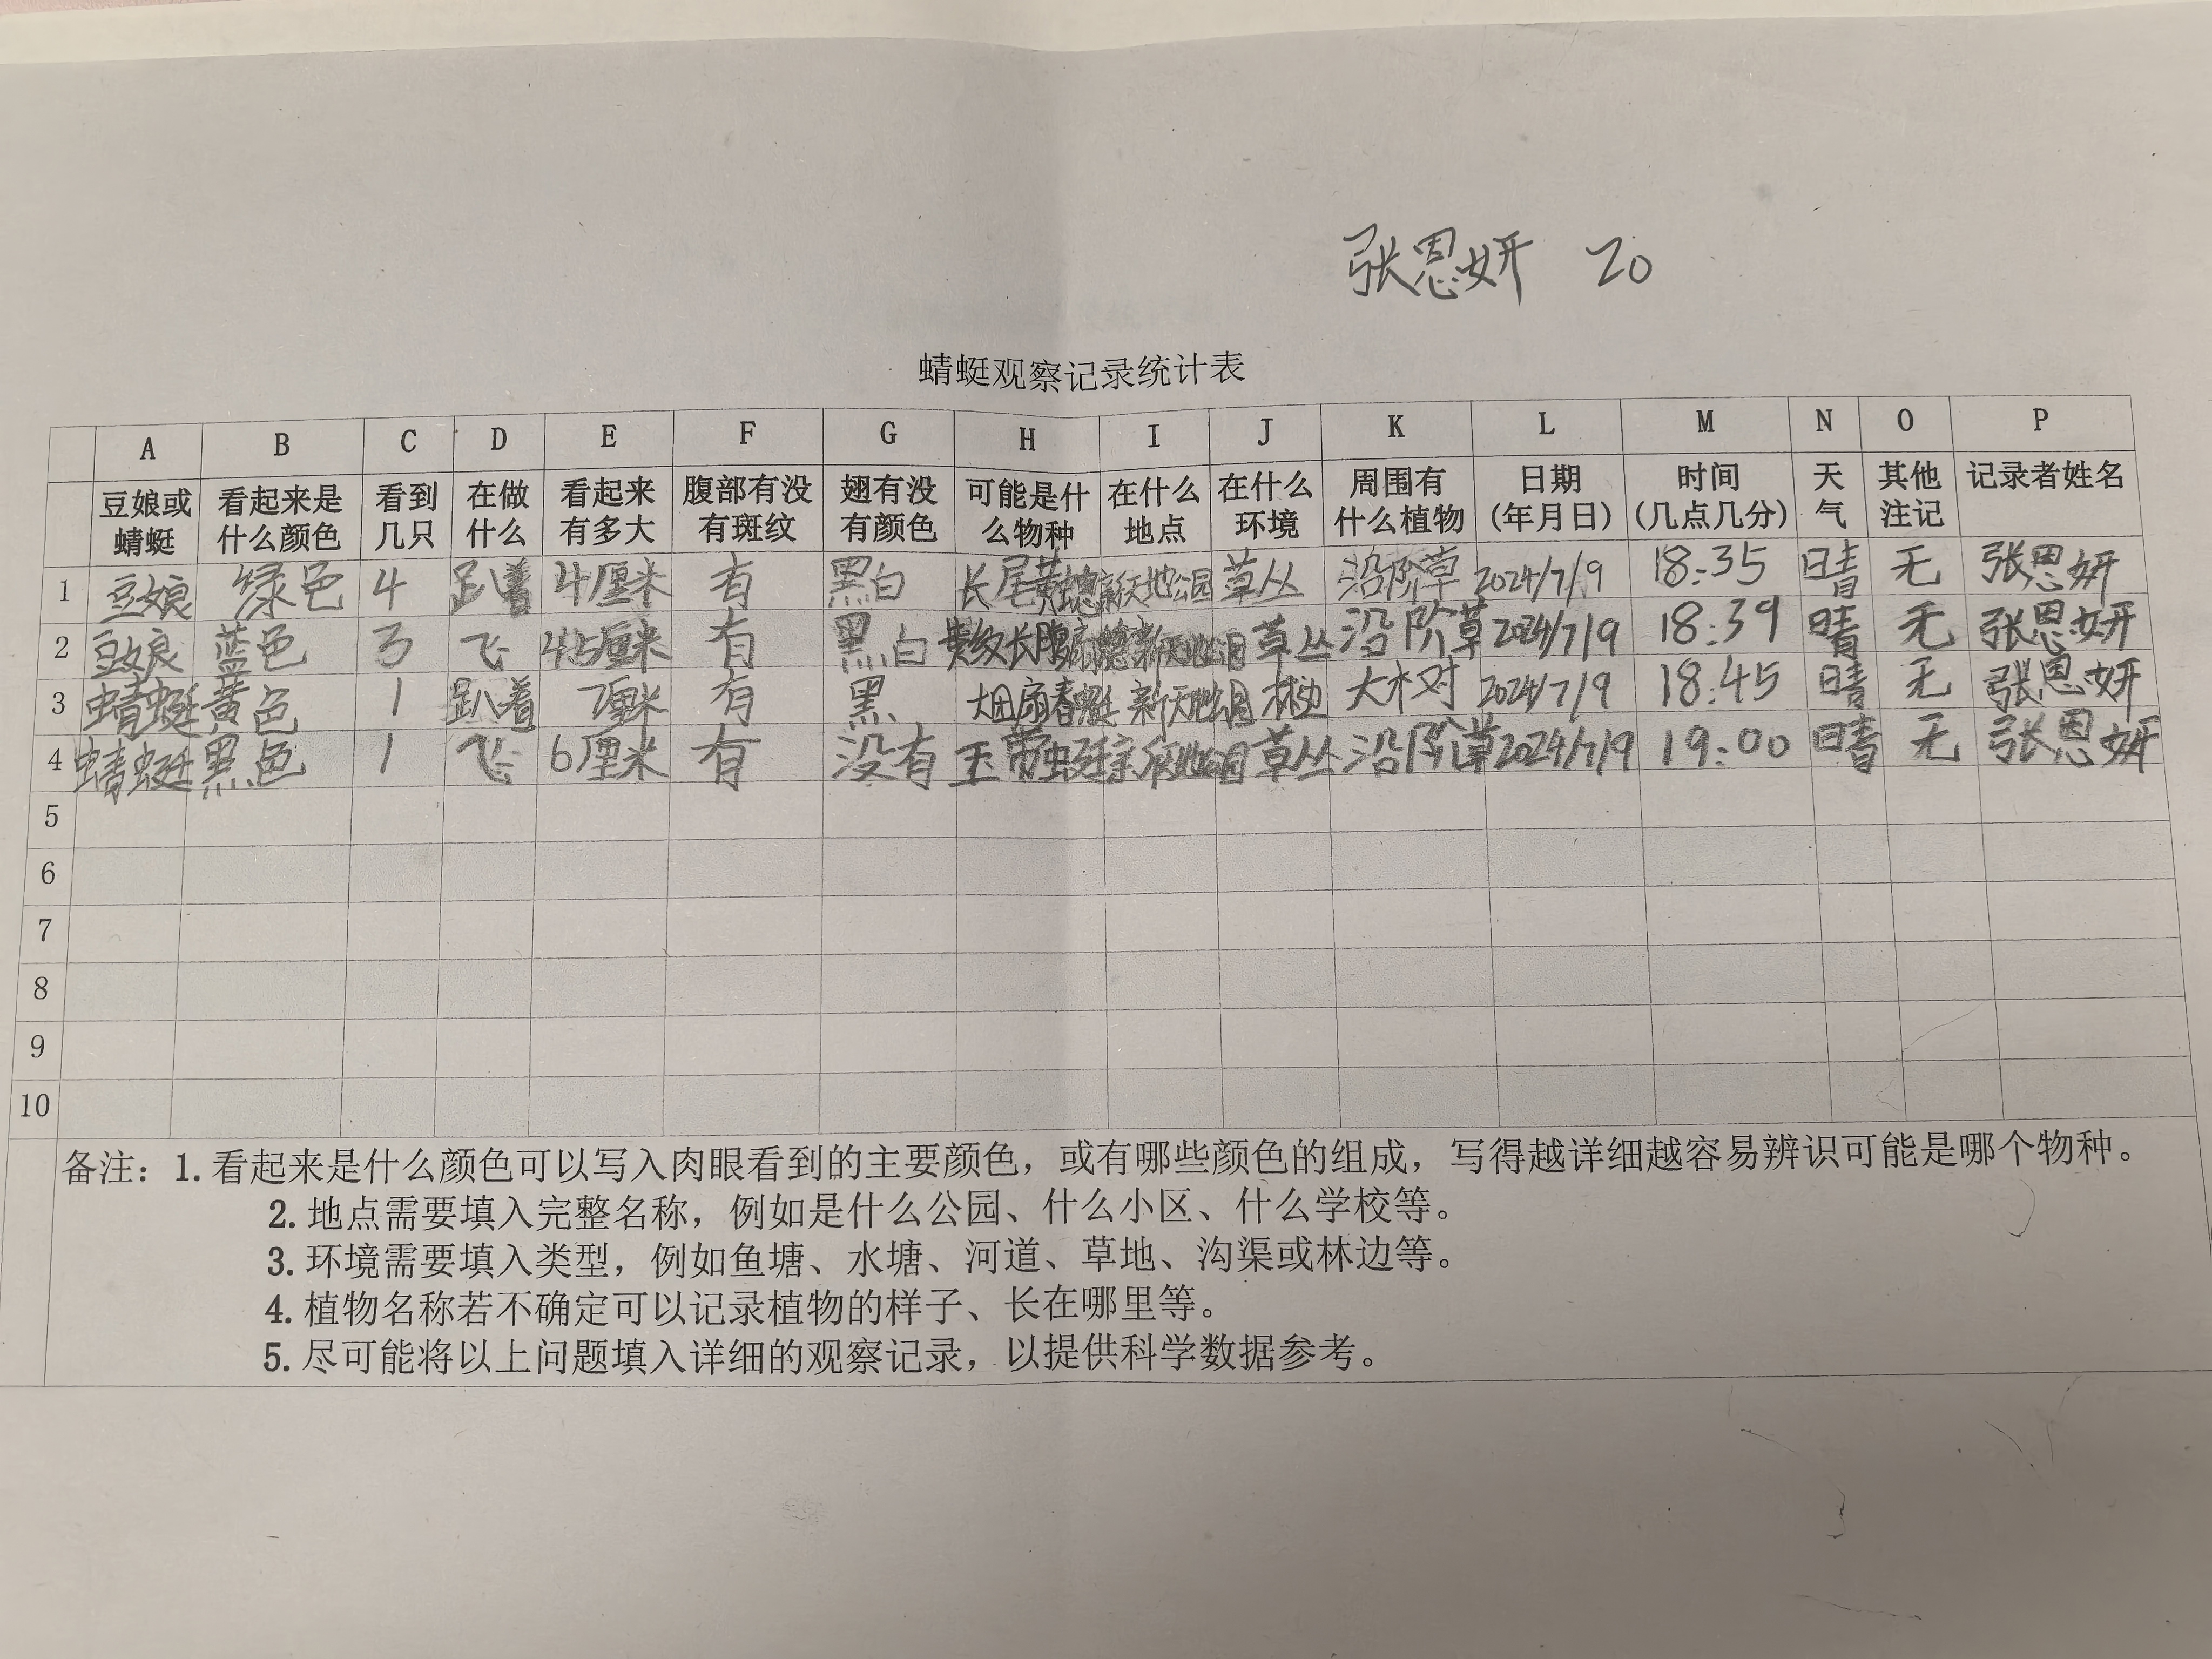 张恩妍 20
蜻蜓观察记录统计表
A B C D E F G H I J K L M N O P
豆娘或蜻蜓 看起来是什么颜色 看到几只 在做什么 看起来有多大 腹部有没有斑纹 翅有没有颜色 可能是什么物种 在什么地点 在什么环境 周围有什么植物 日期(年月日) 时间(几点几分) 天气 其他注记 记录者姓名
1 豆娘 绿色 4 趴着 4厘米 有 黑白 长尾黄蟌 新天地公园 草丛 沿阶草 2024/7/9 18:35 晴 无 张恩妍
2 豆娘 蓝色 3 飞 4.5厘米 有 黑白 黄纹长腹扇蟌 新天地公园 草丛 沿阶草 2024/7/9 18:39 晴 无 张恩妍
3 蜻蜓 黄色 1 趴着 7厘米 有 黑 大团扇春蜓 新天地公园 林边 大树 2024/7/9 18:45 晴 无 张恩妍
4 蜻蜓 黑色 1 飞 6厘米 有 没有 玉带蜻蜓 新天地公园 草丛 沿阶草 2024/7/9 19:00 晴 无 张恩妍
5
6
7
8
9
10
备注：1. 看起来是什么颜色可以写入肉眼看到的主要颜色，或有哪些颜色的组成，写得越详细越容易辨识可能是哪个物种。
2. 地点需要填入完整名称，例如是什么公园、什么小区、什么学校等。
3. 环境需要填入类型，例如鱼塘、水塘、河道、草地、沟渠或林边等。
4. 植物名称若不确定可以记录植物的样子、长在哪里等。
5. 尽可能将以上问题填入详细的观察记录，以提供科学数据参考。